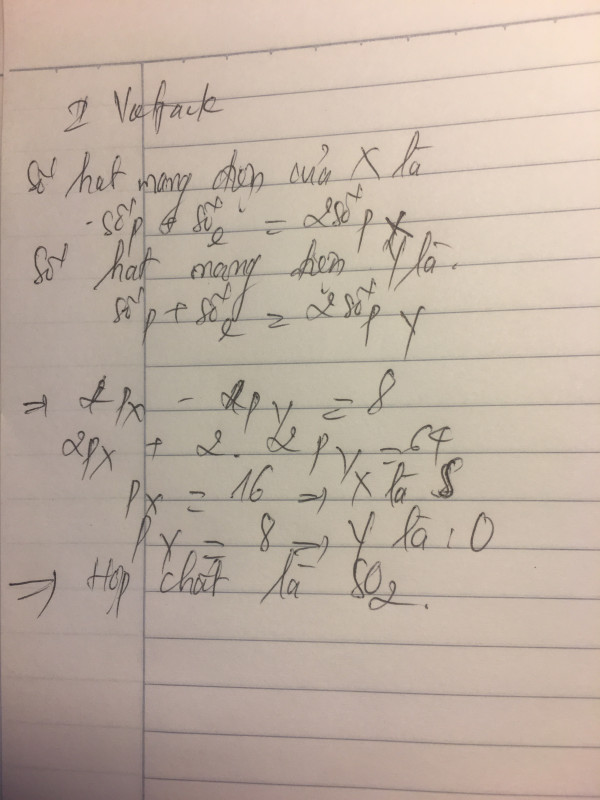 I Vietjack
Số hạt mang điện của X là
- số p + số e = 2số p X
Số hạt mang điện Y là:
số p + số e = 2số p Y
=> 2pX - 2pY = 8
2pX + 2. 2pY = 64
pX = 16 => X là S
pY = 8 => Y là : O
=> Hợp chất là SO2.